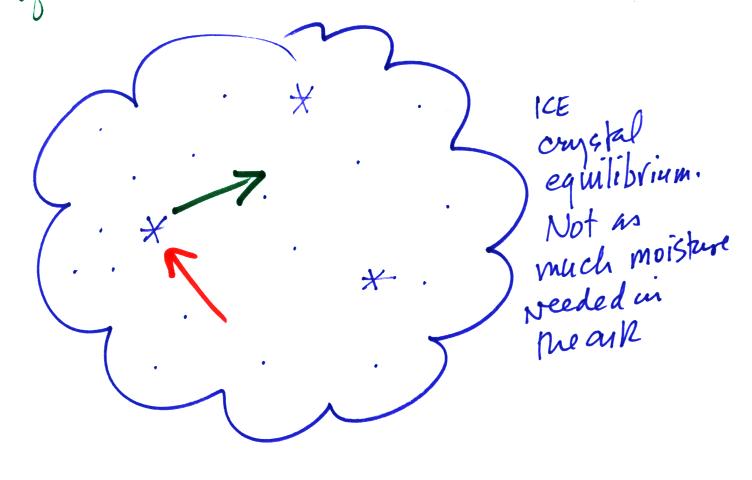 ICE
crystal
equilibrium.
Not as
much moisture
needed in
the air